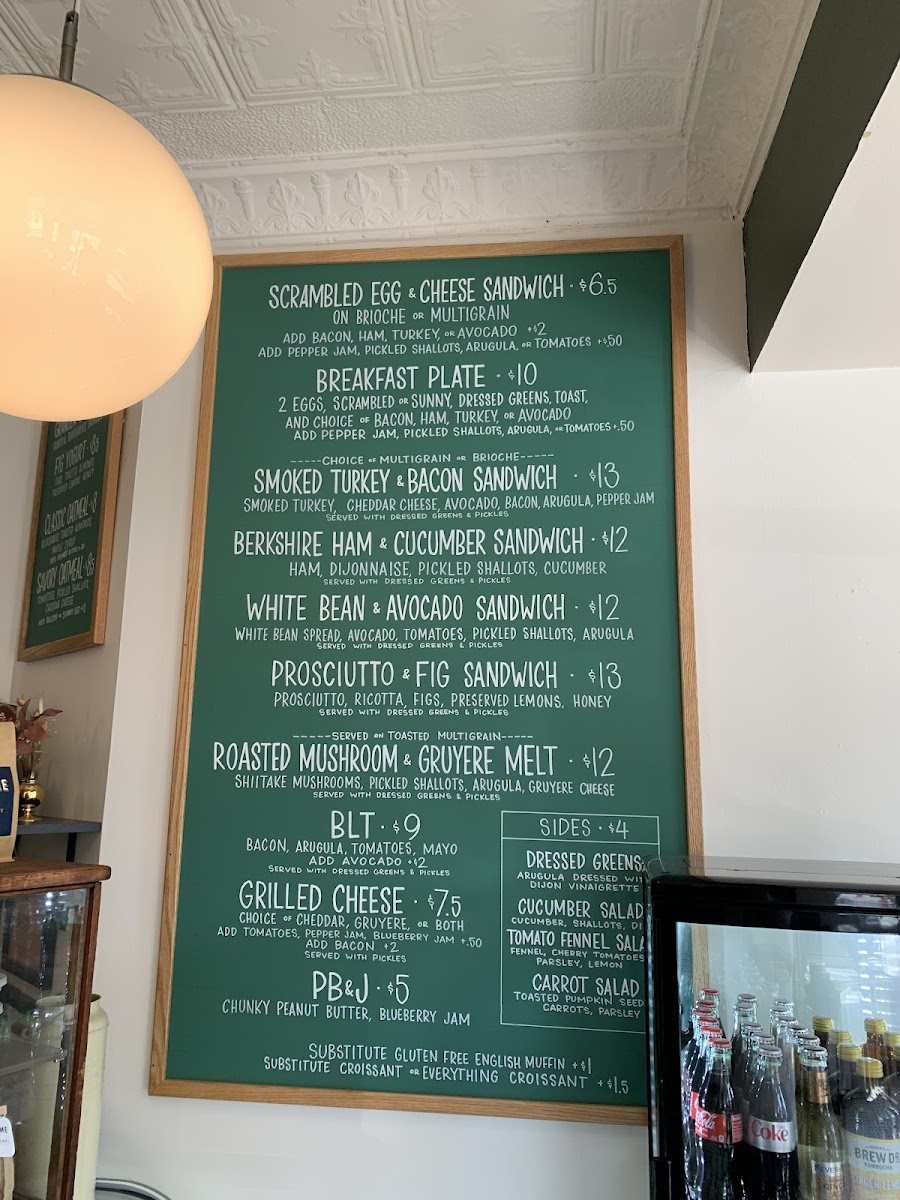 SCRAMBLED EGG & CHEESE SANDWICH · $6.5
ON BRIOCHE OR MULTIGRAIN
ADD BACON, HAM, TURKEY, OR AVOCADO +$2
ADD PEPPER JAM, PICKLED SHALLOTS, ARUGULA, OR TOMATOES +$.50
BREAKFAST PLATE · $10
2 EGGS, SCRAMBLED OR SUNNY, DRESSED GREENS, TOAST,
AND CHOICE OF BACON, HAM, TURKEY, OR AVOCADO
ADD PEPPER JAM, PICKLED SHALLOTS, ARUGULA, OR TOMATOES +.50
-----CHOICE OF MULTIGRAIN OR BRIOCHE-----
SMOKED TURKEY & BACON SANDWICH · $13
SMOKED TURKEY, CHEDDAR CHEESE, AVOCADO, BACON, ARUGULA, PEPPER JAM
SERVED WITH DRESSED GREENS & PICKLES
BERKSHIRE HAM & CUCUMBER SANDWICH · $12
HAM, DIJONNAISE, PICKLED SHALLOTS, CUCUMBER
SERVED WITH DRESSED GREENS & PICKLES
WHITE BEAN & AVOCADO SANDWICH · $12
WHITE BEAN SPREAD, AVOCADO, TOMATOES, PICKLED SHALLOTS, ARUGULA
SERVED WITH DRESSED GREENS & PICKLES
PROSCIUTTO & FIG SANDWICH · $13
PROSCIUTTO, RICOTTA, FIGS, PRESERVED LEMONS, HONEY
SERVED WITH DRESSED GREENS & PICKLES
-----SERVED ON TOASTED MULTIGRAIN-----
ROASTED MUSHROOM & GRUYERE MELT · $12
SHIITAKE MUSHROOMS, PICKLED SHALLOTS, ARUGULA, GRUYERE CHEESE
SERVED WITH DRESSED GREENS & PICKLES
BLT · $9
BACON, ARUGULA, TOMATOES, MAYO
ADD AVOCADO +$2
SERVED WITH DRESSED GREENS & PICKLES
GRILLED CHEESE · $7.5
CHOICE OF CHEDDAR, GRUYERE, OR BOTH
ADD TOMATOES, PEPPER JAM, BLUEBERRY JAM +.50
ADD BACON +2
SERVED WITH PICKLES
PB&J · $5
CHUNKY PEANUT BUTTER, BLUEBERRY JAM
SIDES · $4
DRESSED GREENS
ARUGULA DRESSED WIT
DIJON VINAIGRETTE
CUCUMBER SALAD
CUCUMBER, SHALLOTS, DI
TOMATO FENNEL SALA
FENNEL, CHERRY TOMATOES
PARSLEY, LEMON
CARROT SALAD
TOASTED PUMPKIN SEED
CARROTS, PARSLEY
SUBSTITUTE GLUTEN FREE ENGLISH MUFFIN +$1
SUBSTITUTE CROISSANT OR EVERYTHING CROISSANT +$1.5
FIG YOGURT · $8.5
CLASSIC OATMEAL · $8
MAPLE SYRUP
SAVORY OATMEAL · $8.5
TOMATOES, PICKLED SHALLOTS
CHEDDAR CHEESE
Coke
BREW D
KOMBUCHA